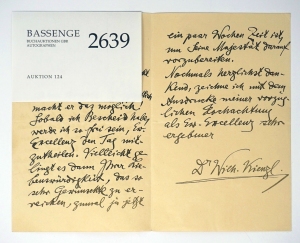 BASSENGE
BUCHAUKTIONEN GBR
AUTOGRAPHEN
2639
AUKTION 124
macht er das möglich!
Sobald ich Bescheid habe,
werde ich so frei sein, Ew.
Excellenz den Tag mit-
zutheilen. Vielleicht ge-
lingt es dann Ihrer Lie-
benswürdigkeit, das so
sehr Gewünschte zu er-
reichen, zumal ja jetzt
ein paar Wochen Zeit ist,
um Seine Majestät darauf
vorzubereiten.
Nochmals herzlichst dan-
kend, zeichne ich mit dem
Ausdrucke meiner vorzüg-
lichen Hochachtung
als Ew. Excellenz sehr
ergebener
Dr Wilh. Kienzl